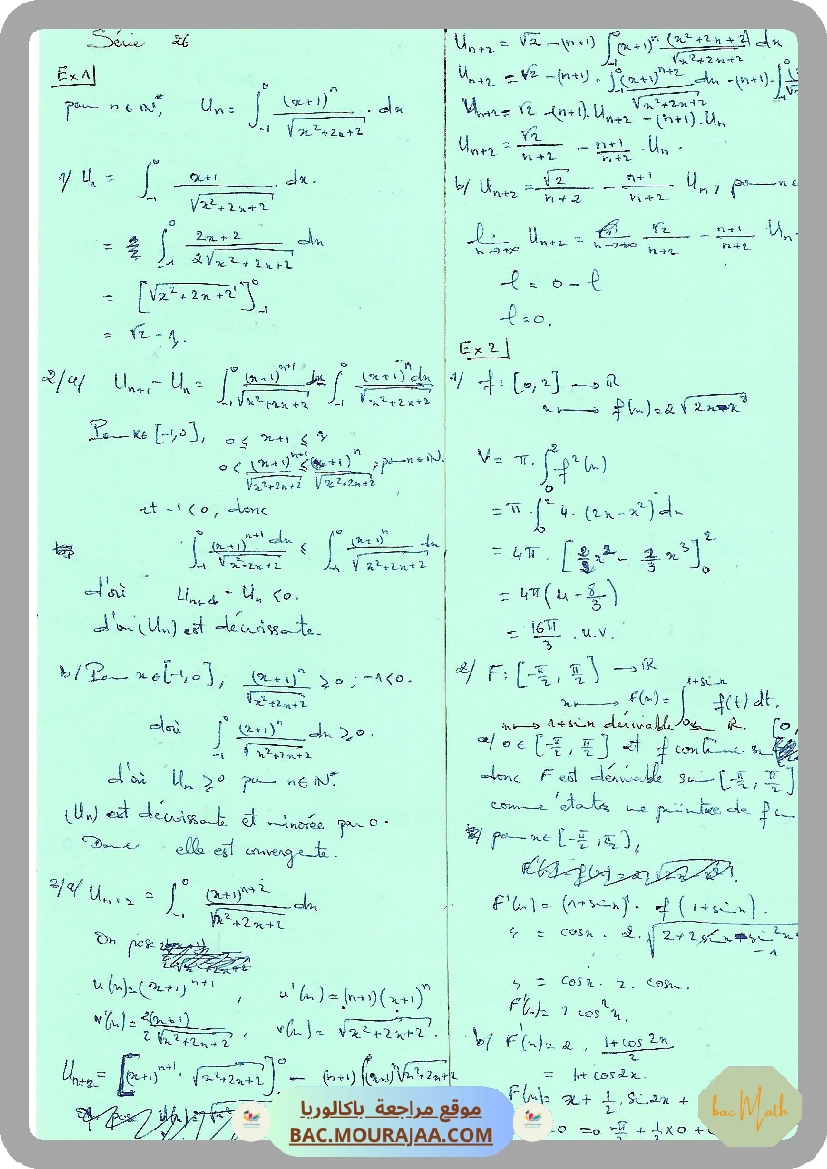 Série 26
Ex 1
pour n ∈ IN*, Un = ∫₋₁⁰ (x+1)ⁿ / √(x²+2x+2) . dx
1/ U₁ = ∫₋₁⁰ (x+1) / √(x²+2x+2) . dx.
= ∫₋₁⁰ (2x+2) / 2√(x²+2x+2) dx
= [√(x²+2x+2)]₋₁⁰
= √2 - 1.
2/a/ Un+1 - Un = ∫₋₁⁰ (x+1)ⁿ⁺¹ / √(x²+2x+2) dx - ∫₋₁⁰ (x+1)ⁿ dx / √(x²+2x+2)
Pour x ∈ [-1,0], 0 ≤ x+1 ≤ 1
0 ≤ (x+1)ⁿ⁺¹ / √(x²+2x+2) ≤ (x+1)ⁿ / √(x²+2x+2), pour n ∈ IN.
et -1 < 0, donc
∫₋₁⁰ (x+1)ⁿ⁺¹ dx / √(x²+2x+2) ≤ ∫₋₁⁰ (x+1)ⁿ / √(x²+2x+2) dx
d'où Un+1 - Un < 0.
d'où (Un) est décroissante.
b/ Pour x ∈ [-1,0], (x+1)ⁿ / √(x²+2x+2) ≥ 0 ; -1 < 0.
d'où ∫₋₁⁰ (x+1)ⁿ / √(x²+2x+2) dx ≥ 0.
d'où Un ≥ 0 pour n ∈ IN*.
(Un) est décroissante et minorée par 0.
Donc elle est convergente.
3/a/ Un+2 = ∫₋₁⁰ (x+1)ⁿ⁺² / √(x²+2x+2) dx
On pose
u(x) = (x+1)ⁿ⁺¹, u'(x) = (n+1)(x+1)ⁿ
v'(x) = 2(x+1) / 2√(x²+2x+2), v(x) = √(x²+2x+2).
Un+2 = [(x+1)ⁿ⁺¹ . √(x²+2x+2)]₋₁⁰ - (n+1) ∫₋₁⁰ (x+1)ⁿ √(x²+2x+2)
Un+2 = √2 - (n+1) ∫₋₁⁰ (x+1)ⁿ (x²+2x+2) / √(x²+2x+2) dx
Un+2 = √2 - (n+1) . ∫₋₁⁰ (x+1)ⁿ⁺² / √(x²+2x+2) dx - (n+1) . ∫₋₁⁰
Un+2 = √2 - (n+1) . Un+2 - (n+1) . Un
Un+2 = √2 / (n+2) - (n+1) / (n+2) . Un.
b/ Un+2 = √2 / (n+2) - (n+1) / (n+2) . Un, pour n ∈
lim n→+∞ Un+2 = lim n→+∞ √2 / (n+2) - (n+1) / (n+2) Un.
l = 0 - l
l = 0.
Ex 2
1/ f : [0,2] → IR
x → f(x) = 2√(2x-x²)
V = π . ∫₀² f²(x)
= π . ∫₀² 4 . (2x-x²) dx
= 4π . [x² - 1/3 x³]₀²
= 4π (4 - 8/3)
= 16π/3 . u.v.
2/ F : [-π/2, π/2] → IR
x → F(x) = ∫₀^(1+sin x) f(t) dt.
x → 1+sin dérivable sur IR. [0,
a/ 0 ∈ [-π/2, π/2] et f continue sur
donc F est dérivable sur [-π/2, π/2]
comme étant une primitive de f
pour x ∈ [-π/2, π/2],
F'(x) = (1+sin x)' . f(1+sin x).
" = cos x . 2 . √(2+2sin x - sin²x
-1
" = cos x . 2 . cos x.
F'(x) = 2 cos²x.
b/ F'(x) = 2 . (1+cos 2x) / 2
= 1+cos 2x.
F(x) = x + 1/2 . sin 2x +
= 0 ⇒ -π/2 + 1/2 × 0 +
موقع مراجعة باكالوريا
BAC.MOURAJAA.COM
bac Math